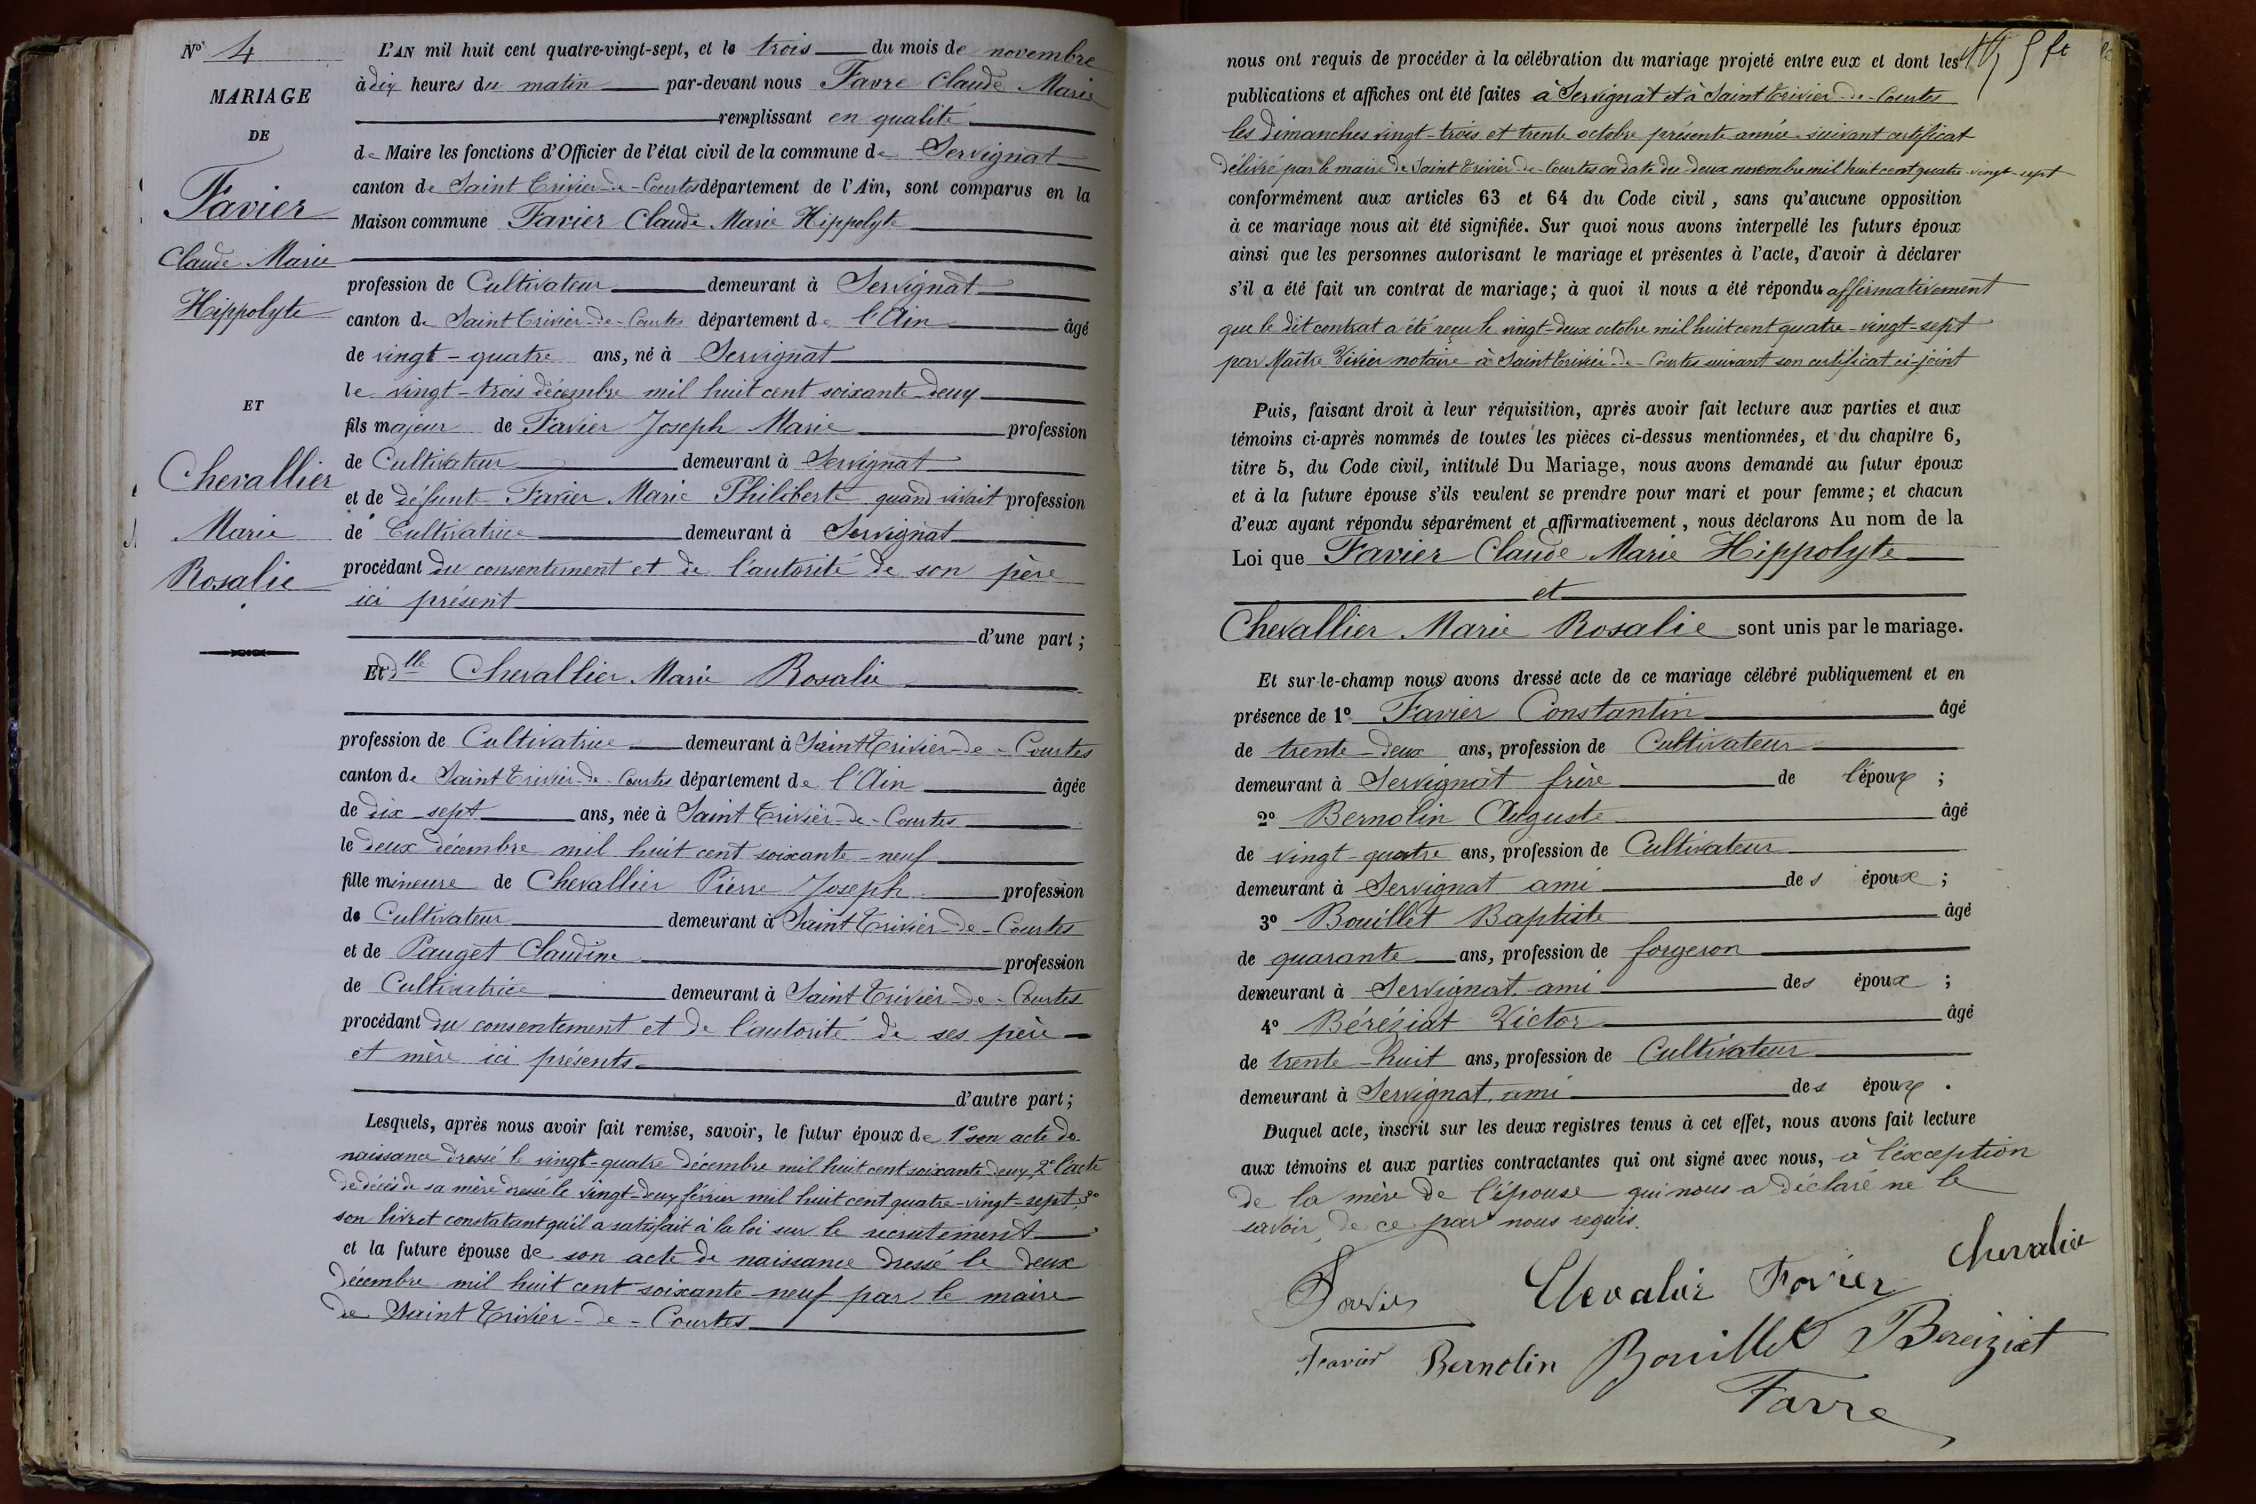 N° 4
MARIAGE
DE
Favier
Claude Marie
Hippolyte
ET
Chevallier
Marie
Rosalie
L'AN mil huit cent quatre-vingt-sept, et le trois du mois de novembre
à dix heures du matin par-devant nous Favre Claude Marie
remplissant en qualité
de Maire les fonctions d'Officier de l'état civil de la commune de Servignat
canton de Saint Trivier-de-Courtes département de l'Ain, sont comparus en la
Maison commune Favier Claude Marie Hippolyte
profession de Cultivateur demeurant à Servignat
canton de Saint Trivier-de-Courtes département de l'Ain âgé
de vingt-quatre ans, né à Servignat
le vingt-trois décembre mil huit cent soixante-deux
fils majeur de Favier Joseph Marie profession
de Cultivateur demeurant à Servignat
et de défunte Favier Marie Philiberte quand vivait profession
de Cultivatrice demeurant à Servignat
procédant du consentement et de l'autorité de son père
ici présent
d'une part ;
Et dlle Chevallier Marie Rosalie
profession de Cultivatrice demeurant à Saint Trivier-de-Courtes
canton de Saint Trivier-de-Courtes département de l'Ain âgée
de dix-sept ans, née à Saint Trivier-de-Courtes
le deux décembre mil huit cent soixante-neuf
fille mineure de Chevallier Pierre Joseph profession
de Cultivateur demeurant à Saint Trivier-de-Courtes
et de Pauget Claudine profession
de Cultivatrice demeurant à Saint Trivier-de-Courtes
procédant du consentement et de l'autorité de ses père
et mère ici présents
d'autre part ;
Lesquels, après nous avoir fait remise, savoir, le futur époux de 1° son acte de
naissance dressé le vingt-quatre décembre mil huit cent soixante-deux, 2° l'acte
de décès de sa mère dressé le vingt-deux février mil huit cent quatre-vingt-sept, 3°
son livret constatant qu'il a satisfait à la loi sur le recrutement
et la future épouse de son acte de naissance dressé le deux
décembre mil huit cent soixante-neuf par le maire
de Saint Trivier-de-Courtes
nous ont requis de procéder à la célébration du mariage projeté entre eux et dont les
publications et affiches ont été faites à Servignat et à Saint Trivier-de-Courtes
les dimanches vingt-trois et trente octobre présente année suivant certificat
délivré par le maire de Saint Trivier-de-Courtes en date du deux novembre mil huit cent quatre-vingt-sept
conformément aux articles 63 et 64 du Code civil, sans qu'aucune opposition
à ce mariage nous ait été signifiée. Sur quoi nous avons interpellé les futurs époux
ainsi que les personnes autorisant le mariage et présentes à l'acte, d'avoir à déclarer
s'il a été fait un contrat de mariage ; à quoi il nous a été répondu affirmativement
que le dit contrat a été reçu le vingt-deux octobre mil huit cent quatre-vingt-sept
par Maître Vivier notaire à Saint Trivier-de-Courtes suivant son certificat ci-joint
Puis, faisant droit à leur réquisition, après avoir fait lecture aux parties et aux
témoins ci-après nommés de toutes les pièces ci-dessus mentionnées, et du chapitre 6,
titre 5, du Code civil, intitulé Du Mariage, nous avons demandé au futur époux
et à la future épouse s'ils veulent se prendre pour mari et pour femme ; et chacun
d'eux ayant répondu séparément et affirmativement, nous déclarons Au nom de la
Loi que Favier Claude Marie Hippolyte
et
Chevallier Marie Rosalie sont unis par le mariage.
Et sur-le-champ nous avons dressé acte de ce mariage célébré publiquement et en
présence de 1° Favier Constantin âgé
de trente-deux ans, profession de Cultivateur
demeurant à Servignat frère de l'époux ;
2° Bernolin Auguste âgé
de vingt-quatre ans, profession de Cultivateur
demeurant à Servignat ami des époux ;
3° Bouillet Baptiste âgé
de quarante ans, profession de forgeron
demeurant à Servignat ami des époux ;
4° Béréziat Victor âgé
de trente-huit ans, profession de Cultivateur
demeurant à Servignat, ami des époux .
Duquel acte, inscrit sur les deux registres tenus à cet effet, nous avons fait lecture
aux témoins et aux parties contractantes qui ont signé avec nous, à l'exception
de la mère de l'épouse qui nous a déclaré ne le
savoir, de ce par nous requis.
Favier Chevalier Favier Chevalier
Favier Bernolin Bouillet Bereiziat
Favre